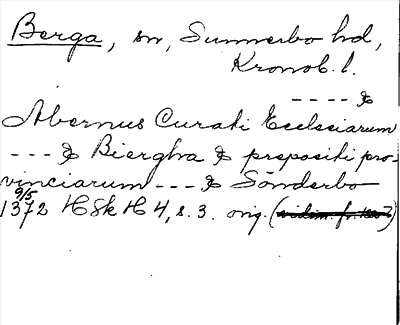 Berga, sn, Sunnerbo hd,
Kronob. l.
---- &
Abernus Curati Ecclesiarum
--- & Biergha & prepositi pro-
vinciarum --- & Sönderbo
9/5
1372 HSk H 4, s. 3. orig. (vidim. fr. 1507)